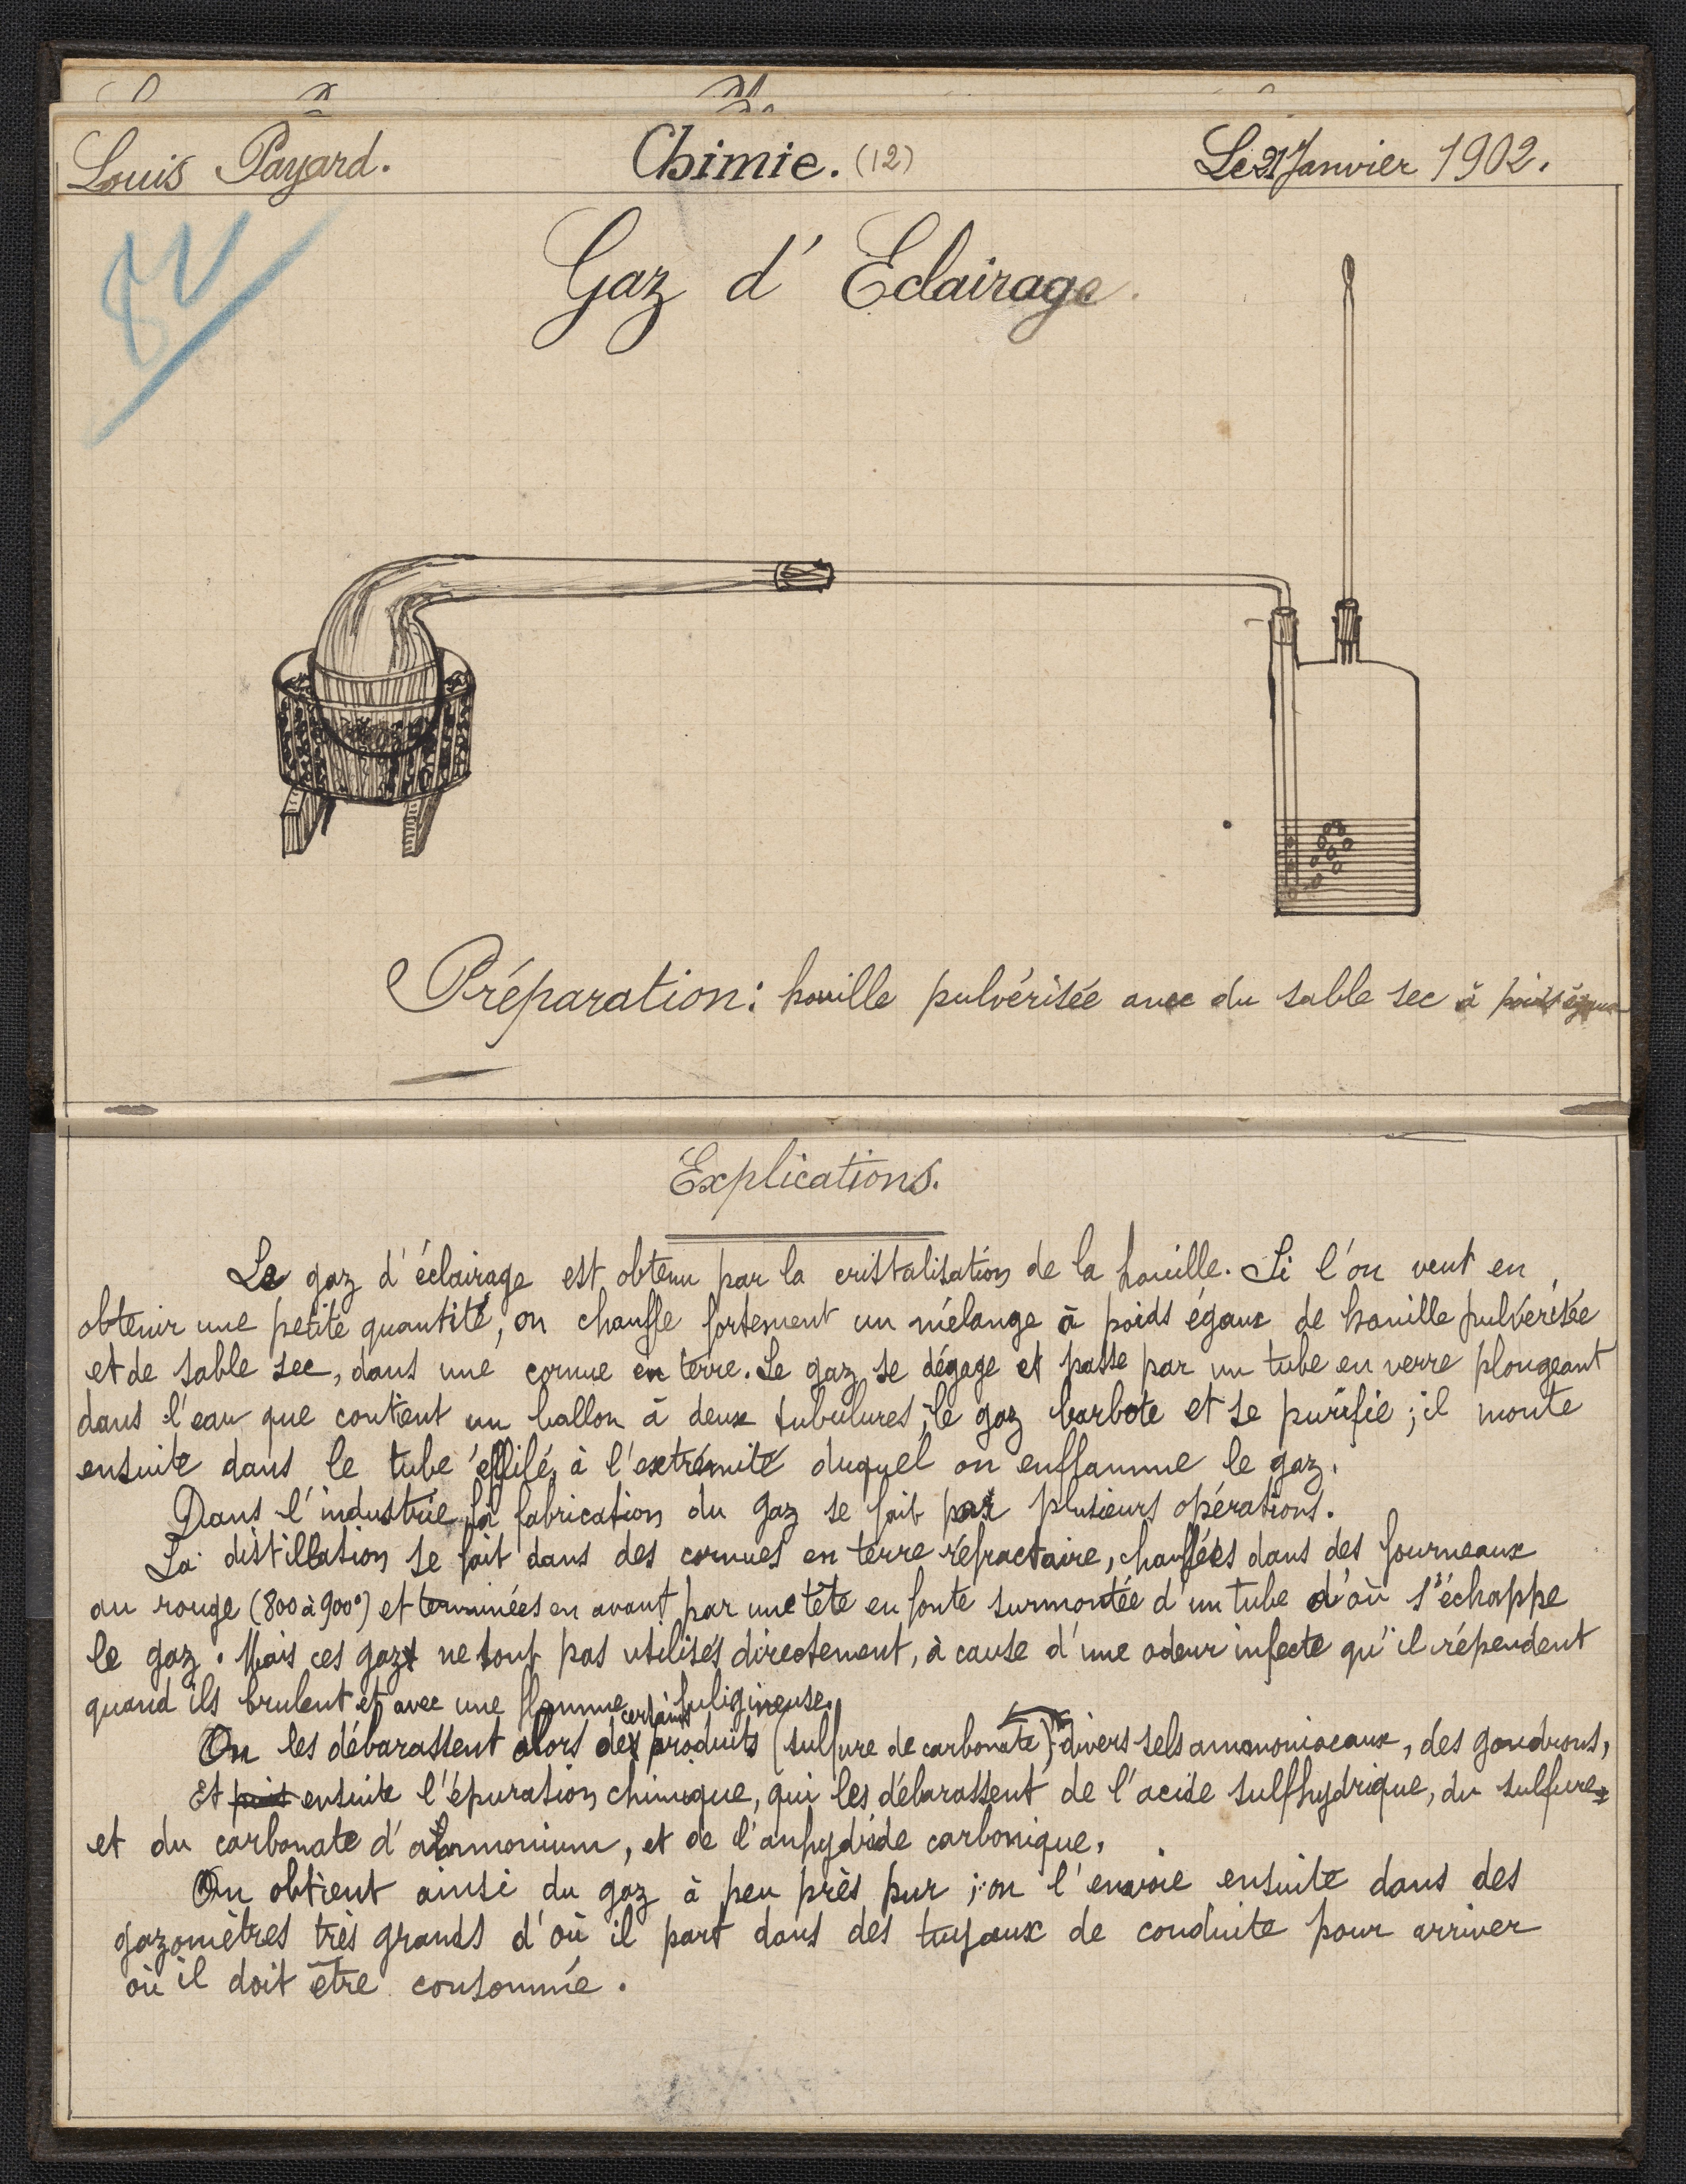 Louis Payard.
Chimie. (12)
Le 21 Janvier 1902.
Gaz d' Eclairage.
Préparation: houille pulvérisée avec du sable sec à poids égaux
Explications.
Le gaz d'éclairage est obtenu par la cristalisation de la houille. Si l'on veut en
obtenir une petite quantité, on chauffe fortement un mélange à poids égaux de houille pulvérisée
et de sable sec, dans une cornue en terre. Le gaz se dégage et passe par un tube en verre plongeant
dans l'eau que contient un ballon à deux tubulures; le gaz barbote et se purifie; il monte
ensuite dans le tube effilé à l'extrémité duquel on enflamme le gaz.
Dans l'industrie la fabrication du gaz se fait par plusieurs opérations.
La distillation se fait dans des cornues en terre réfractaire, chauffées dans des fourneaux
au rouge (800 à 900°) et terminées en avant par une tête en fonte surmontée d'un tube d'où s'échappe
le gaz. Mais ces gaz ne sont pas utilisés directement, à cause d'une odeur infecte qu'il répendent
quand ils brulent et avec une flamme fuligineuse.
On les débarassent alors de certains produits (sulfure de carbonate) divers sels ammoniacaux, des goudrons,
Et puis ensuite l'épuration chimique, qui les débarassent de l'acide sulfhydrique, du sulfure
et du carbonate d'ammonium, et de l'anhydride carbonique.
On obtient ainsi du gaz à peu près pur; on l'envoie ensuite dans des
gazomètres très grands d'où il part dans des tuyaux de conduite pour arriver
où il doit être consommée.